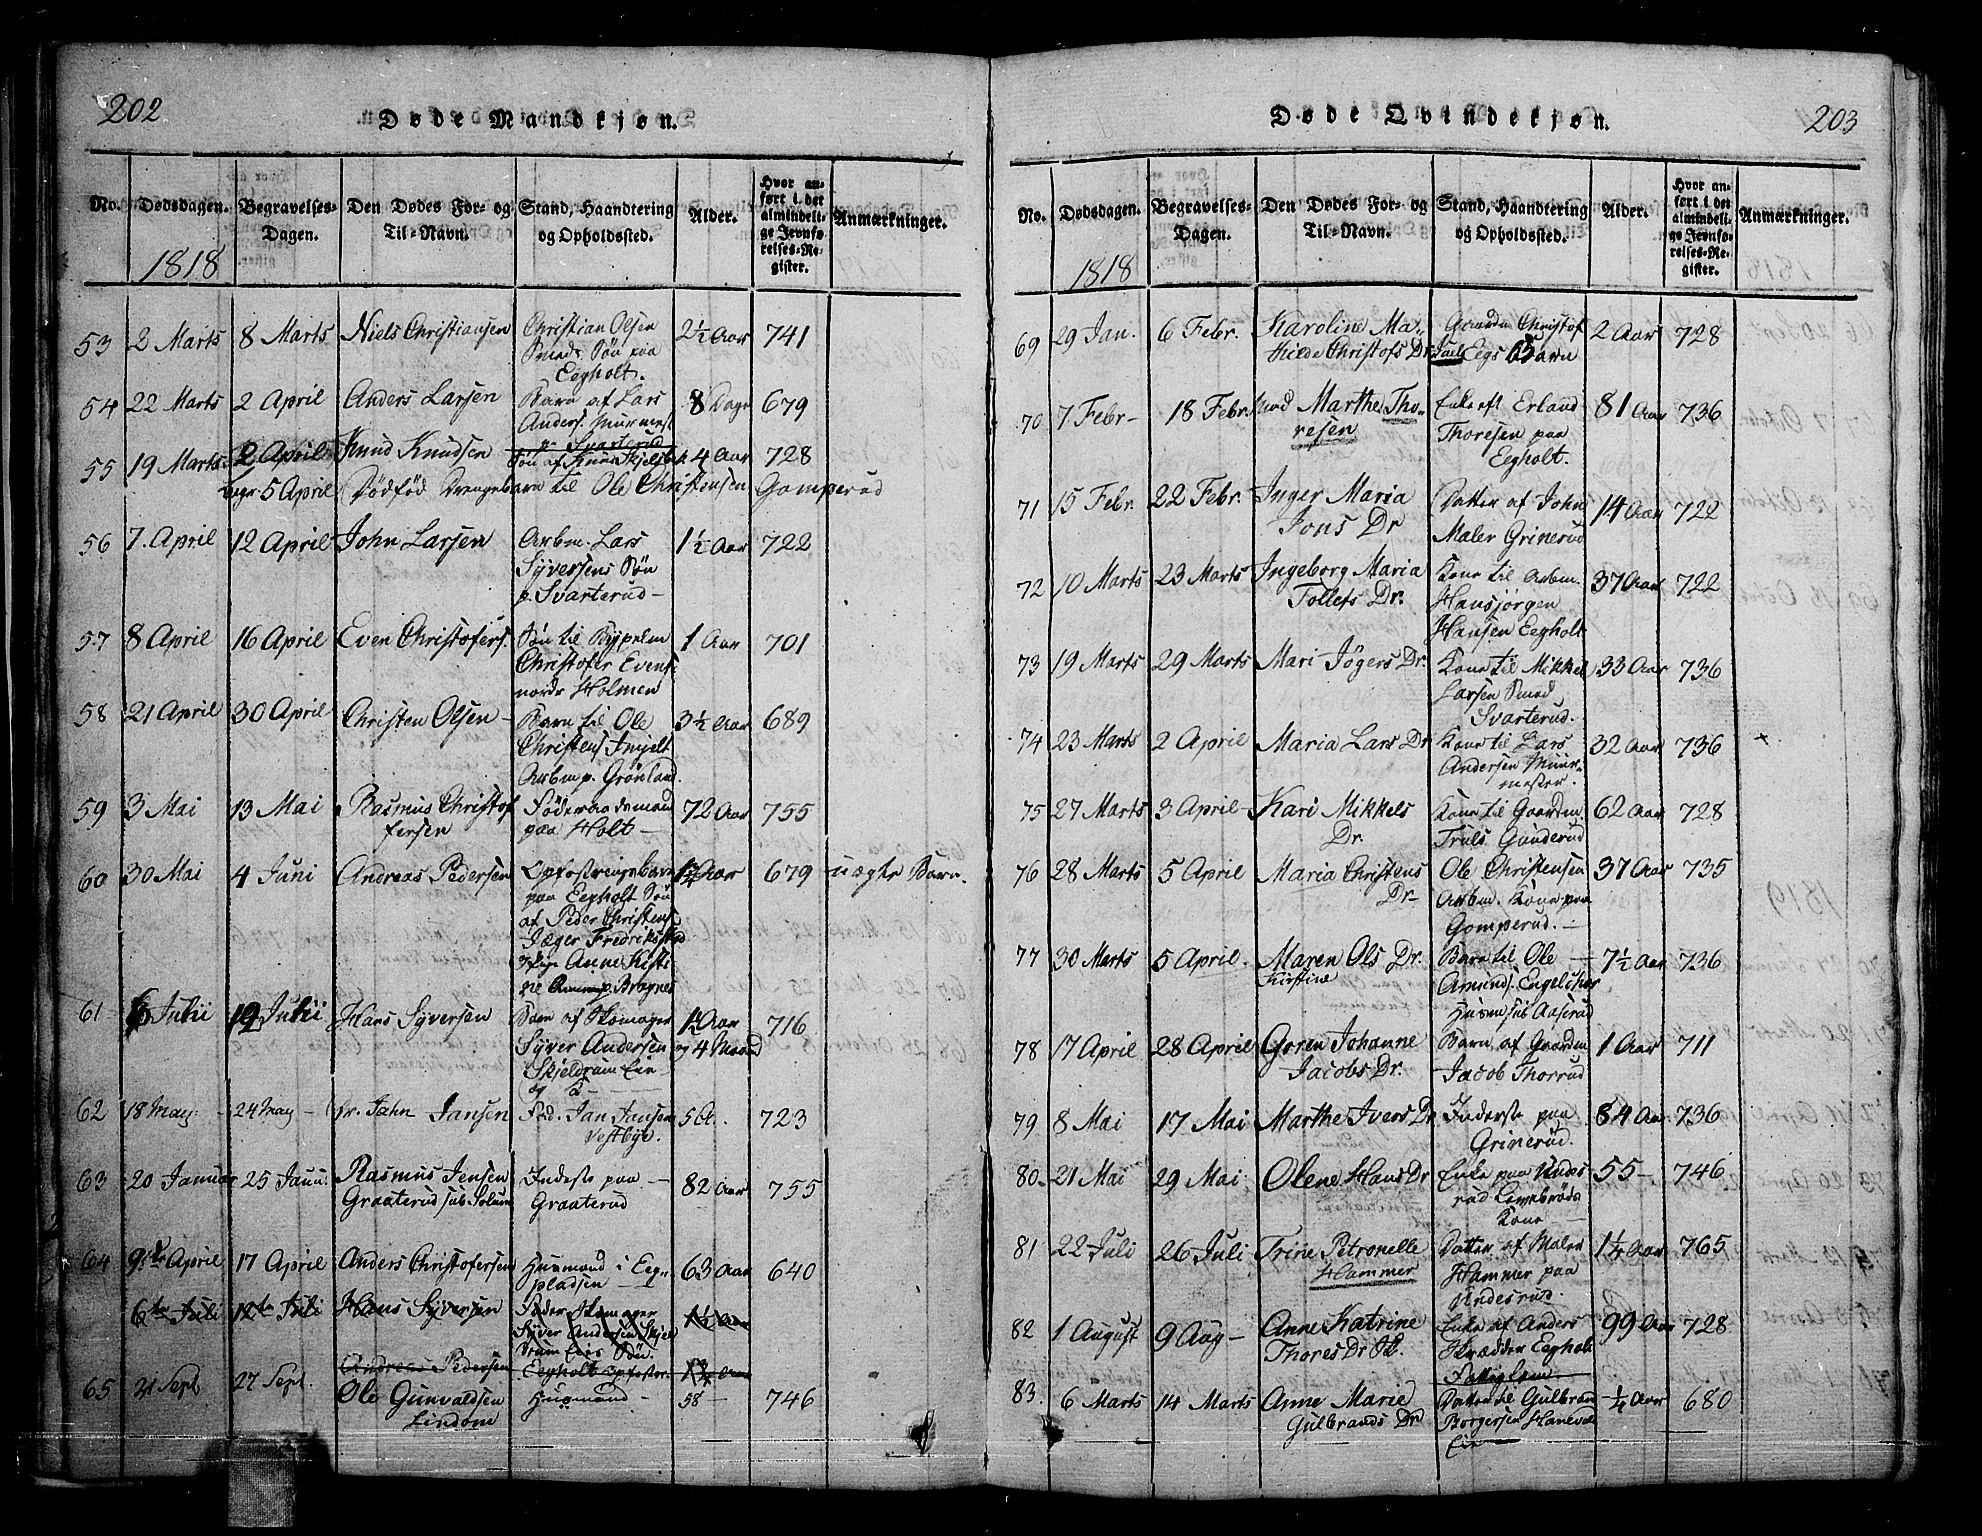 202
Døde Mandkjøn.
No.
Dødsdagen.
Begravelses-
Dagen.
Den Dødes For- og
Til-Navn.
Stand, Haandtering
og Opholdssted.
Alder.
Hvor an-
ført i det
almindeli-
ge Jevnfø-
relses-Re-
gister.
Anmærkninger.
1818
53 2 Marts 8 Marts Niels Christiansen Christian Olsen 2½ Aar 741
Smeds Søn paa
Eegholt.
54 22 Marts 2 April Anders Larsen Barn af Lars 8 Dage 679
Anders. Muurmest
p. Svarterud
55 19 Marts 2 April Knud Knudsen Søn af Knud 4 Aar 728
5 April Dødfød Drengebarn til Ole Christensen Gomperud
56 7. April 12 April John Larsen Arbm. Lars 1½ Aar 722
Syversens Søn
p. Svarterud
57 8 April 16 April Even Christofers. Søn til 1 Aar 701
Christofer Evens.
nordr Holmen
58 21 April 30 April Christen Olsen Barn til Ole 3½ Aar 689
Christens.
Arbm p. Grönland
59 3 Mai 13 Mai Rasmus Christof Föderaadsmand 72 Aar 755
fersen paa Holt
60 30 Mai 4 Juni Andreas Pedersen Opfostringsbarn Aar 679 uægte Barn.
paa Eegholt Søn
af Peder Christens.
Jæger Fredriksstad
Pige Anne Kisti
ne p. Bragnes
61 6 Julii 12 Julii Hans Syversen Barn af Skomager 1 Aar 716
Syver Andersen og 4 Maaned
Skjeldrum Eie
62 18 May 24 May Jahn Jansen Jan Jansen 723
Vestbye.
63 20 Januar 25 Janu. Rasmus Jensen Inderste paa 82 Aar 755
Graaterud sub. Solum Graaterud
64 9de April 17 April Anders Christofersen Huusmand i Eeg- 63 Aar 640
pladsen
6te Juli 12te Juli Hans Syversen Fader Skomager 1½ Aar
Syver Andersen Skjel
drum Eies Søn.
Andreas Pedersen Eegholt Opfostr. Aar
65 21 Sept 27 Sept. Ole Gunvaldsen Huusmand 58 746
Lindom
203
Døde Qvindekjøn.
No.
Dødsdagen.
Begravelses-
Dagen.
Den Dødes For- og
Til-Navn.
Stand, Haandtering
og Opholdssted.
Alder.
Hvor an-
ført i det
almindeli-
ge Jevnfø-
relses-Re-
gister.
Anmærkninger.
1818
69 29 Jan. 6 Febr. Karoline Ma- Gaardm Christof 2 Aar 728
thilde Christofs Dr. Eegs Barn
70 7 Febr 18 Febr. Mad Marthe Tho- Enke eft Erland 81 Aar 736
resen Thoresen paa
Eegholt.
71 15 Febr. 22 Febr. Inger Maria Datter af John 14 Aar 722
Jons Dr Maler Grinerud
72 10 Marts 23 Marts Ingeborg Maria Kone til Arbm. 37 Aar 722
Tollefs Dr. Hansjørgen
Hansen Eegholt
73 19 Marts 29 Marts Mari Jøgers Dr. Kone til Mikkel 33 Aar 736
Larsen Smed
Svarterud.
74 23 Marts 2 April Maria Lars Dr Kone til Lars 32 Aar 736 +
Andersen Muur-
mester
75 27 Marts 3 April Kari Mikkels Kone til Gaardm. 62 Aar 728
Dr. Truls Gunderud
76 28 Marts 5 April Maria Christens Ole Christensen 37 Aar 735
Dr Arbm. Kone paa
Gomperud.
77 30 Marts 5 April. Maren Ols Dr. Barn til Ole 7½ Aar 736
Kirstine Amunds.
Huusm sub Aaserud
78 17 April 28 April Goren Johanne Barn af Gaardm 1 Aar 711
Jacobs Dr. Jacob Thorrud
79 8 Mai 17 Mai Marthe Ivers Dr Inderste paa 84 Aar 736
Grinerud.
80 21 Mai 29 Mai Olene Hans Dr Enke paa Undes 55 746
rud
Kone
81 22 Juli 26 Juli Trine Petronelle Datter af Maler 1¼ Aar 765
Hammer Hammer paa
Undesrud.
82 1 August 9 Aug Anne Katrine Enke af Anders 99 Aar 728
Thores Dr Skrædder Eegholt
Fattiglem
83. 6 Marts 14 Marts Anne Marie Datter til Gulbran ¼ Aar 680
Gulbrands Dr Borgersen
Eie